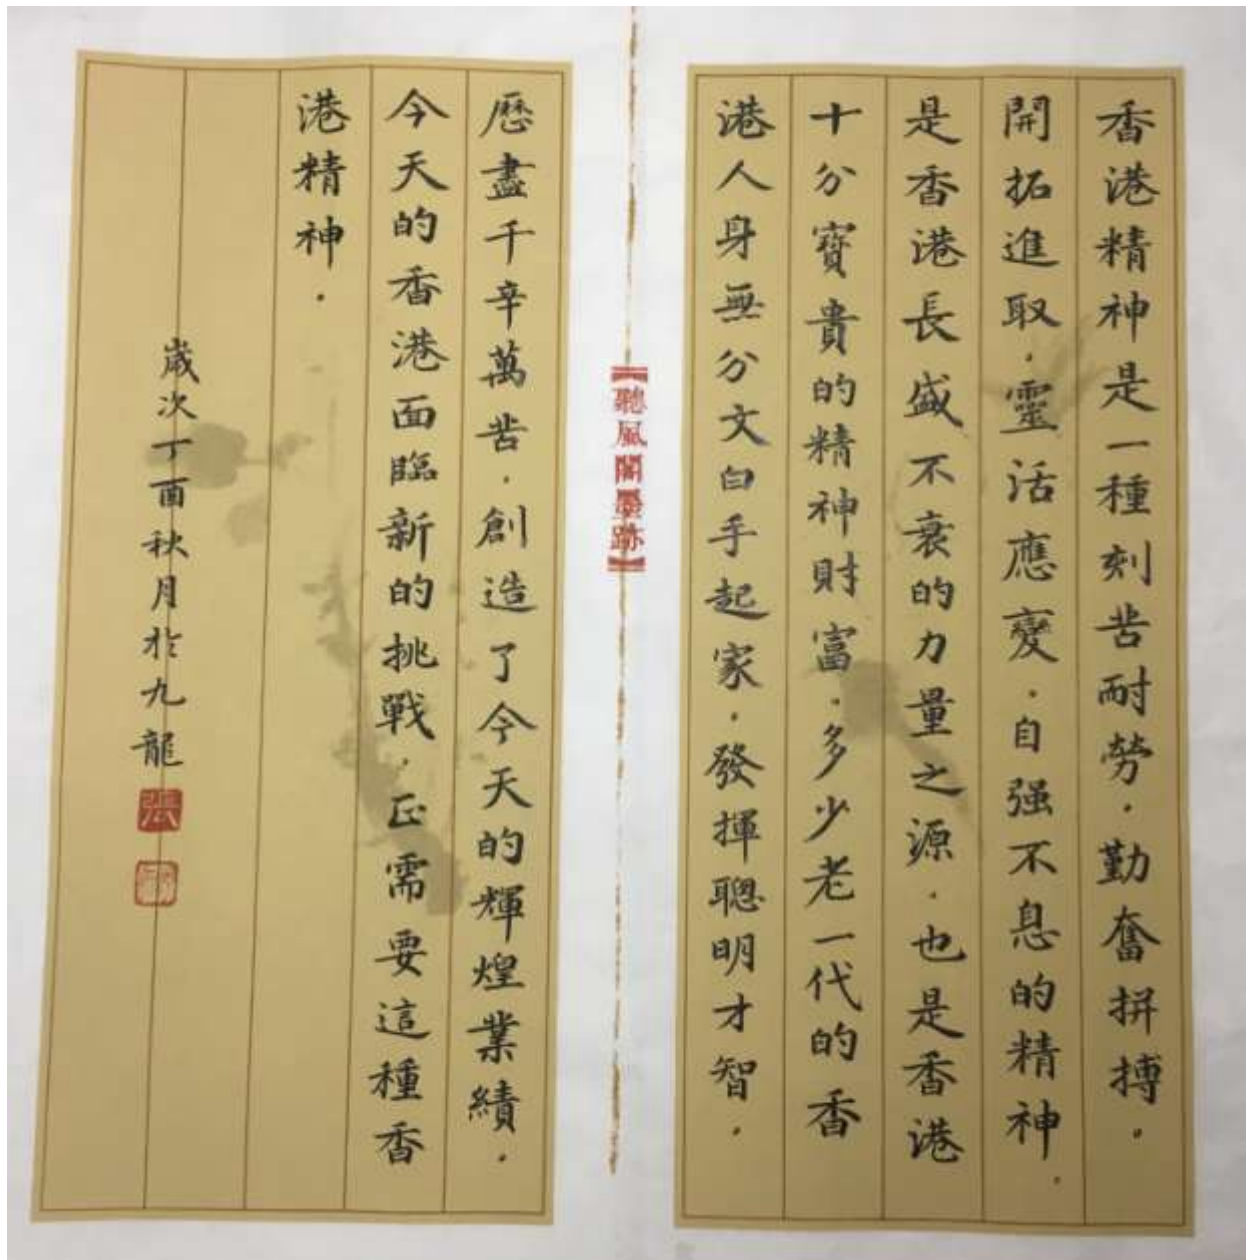 香港精神是一種刻苦耐勞．勤奮拼搏．
開拓進取．靈活應變．自强不息的精神．
是香港長盛不衰的力量之源．也是香港
十分寶貴的精神財富．多少老一代的香
港人身無分文白手起家．發揮聰明才智．
【聽風閣墨跡】
歷盡千辛萬苦．創造了今天的輝煌業績．
今天的香港面臨新的挑戰．正需要這種香
港精神．
歲次丁酉秋月於九龍
張